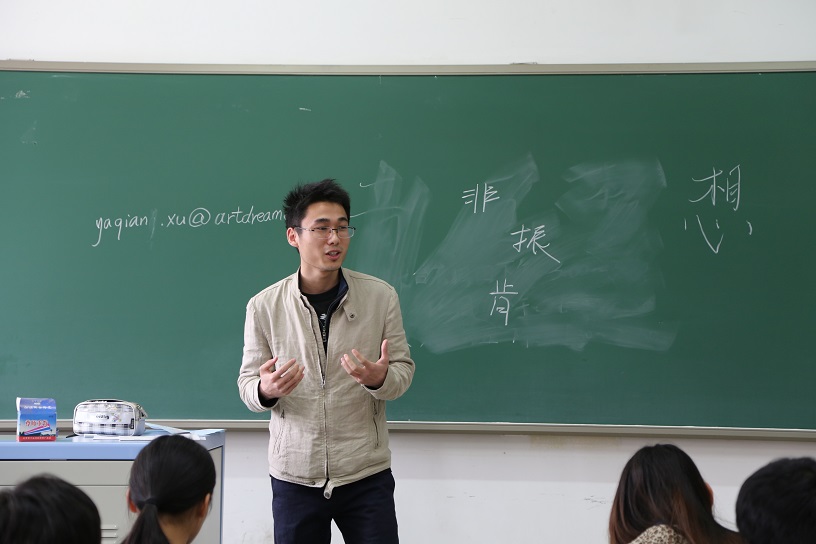 yaqian.xu@artdream
非
振
肯
想